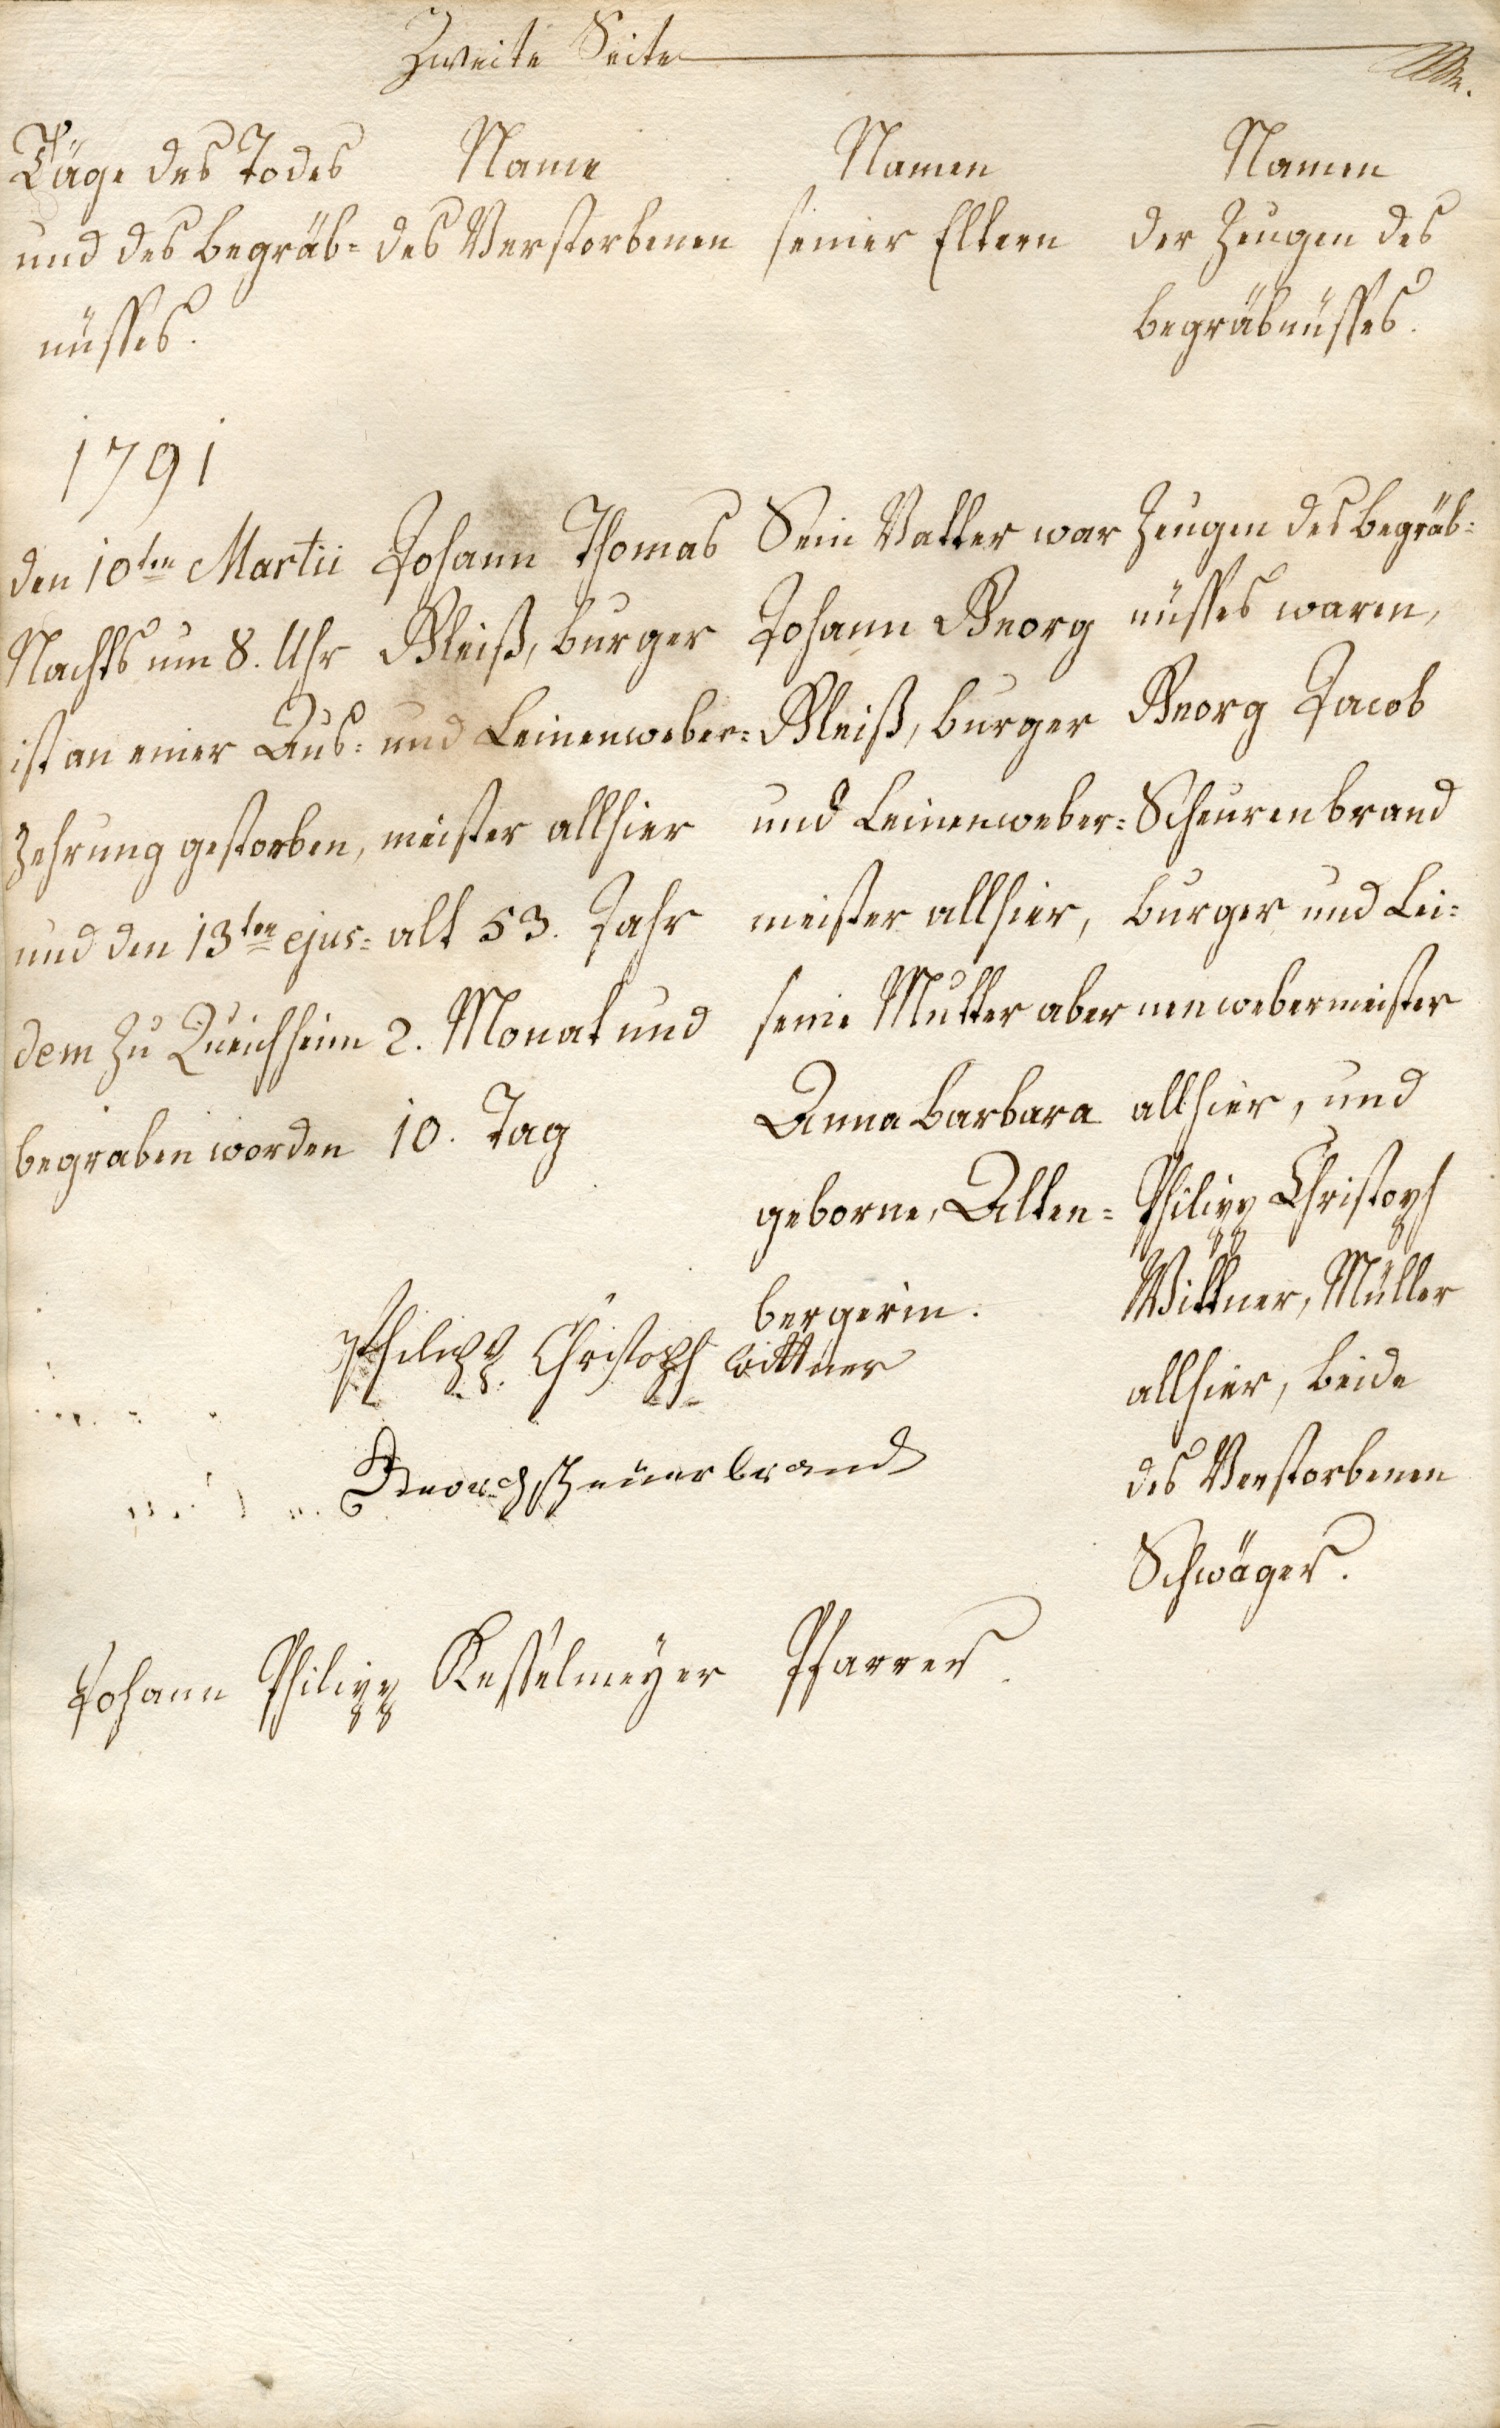 Zweite Seite
Täge des Todes
und des Begräb=
nüsses.
Name
des Verstorbenen
Namen
seiner Eltern
Namen
der Zeugen des
Begräbnüsses.
1791
den 10ten Martii
Nachts um 8. Uhr
ist an einer Aus=
zehrung gestorben,
und den 13ten ejus=
dem zu Queichheim
begraben worden
Johann Thomas
Gleiß, burger
und Leinenweber=
meister allhier
alt 53. Jahr
2. Monat und
10. Tag
Sein Vatter war
Johann Georg
Gleiß, burger
und Leinenweber=
meister allhier,
seine Mutter aber
Anna Barbara
geborne, Alten=
bergerin.
Zeugen des Begräb=
nüsses waren,
Georg Jacob
Scheurenbrand
burger und Lei=
nenwebermeister
allhier, und
Philipp Christoph
Wittner, Müller
allhier, beide
des Verstorbenen
Schwäger.
Philipp Christoph Wittner
Georch scheuerbrand
Johann Philipp Kesselmeyer Pfarrer.